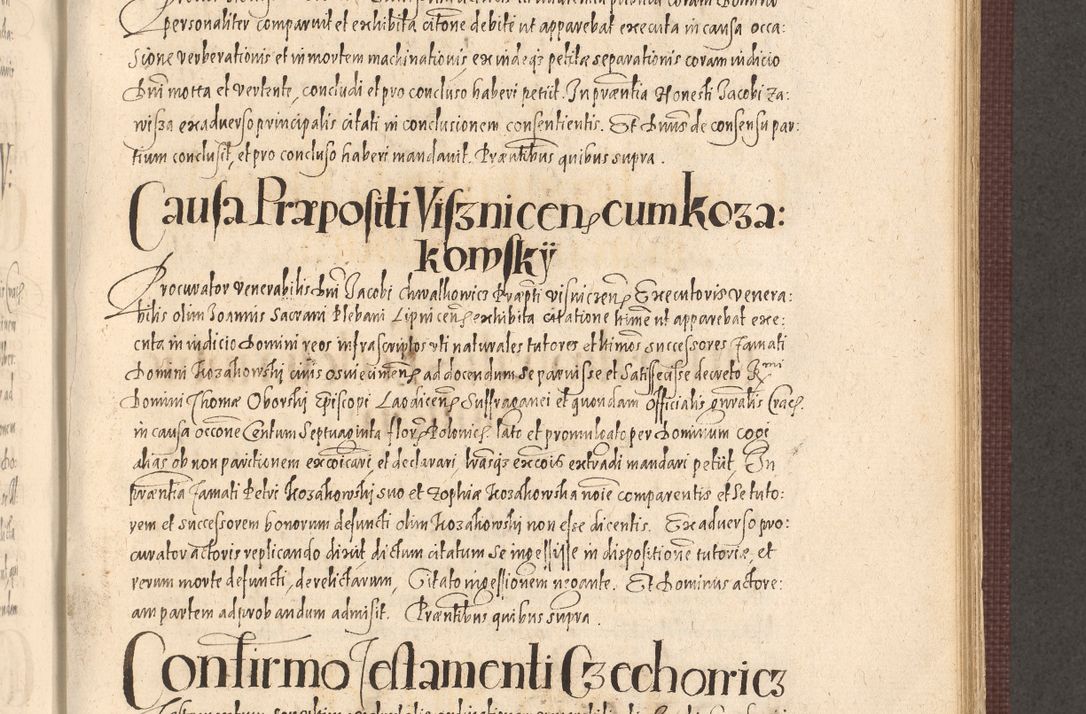 personaliter comparuit et exhibita citone debite ut apparebat executa in causa occa:
sione verberationis et in mortem machinationis ex indeq3 petitæ separationis coram iudicio
Dni motta et vertente, concludi et pro concluso haberi petiit. In præntia Honesti Jacobi Za:
wisza ex adverso principalis citati in conclusionem consentientis. Et Dnus de consensu par:
tium conclusit, et pro concluso haberi mandavit. Præntibus quibus supra.
Causa Præpositi Viszniceñ cum Koza:
kowskÿ
Procurator venerabilis Dni Jacobi Chwalkowicz Præpti Visniczeñ Executoris venera:
bilis olim Joannis Sacrani Plebani Lipniceñ exhibita citatione ut apparebat exe:
cuta in iudicio Domini reos infrascriptos uti naturales tutores et successores famati
Domini Kozakowskj civis Osviecimeñ ad docendum se paruisse et satisfecisse decreto Rmi
Domini Thomæ Oborskj Episcopi Laodiceñ Suffraganei et quondam Officialis gnralis Crac.
in causa occone Centum Septuaginta flor. Polonic. lato et promulgato per Dominum cogi
alias ob non paritionem excoicari, et declarari, excois extradi mandari petiit. In
præntia famati Petri Kozakowskj suo et Zophiæ Kozakowska noie comparentis et se tuto:
rem et successorem bonorum defuncti olim Kozakowskj non esse dicentis. Ex adverso pro:
curator actoris replicando dixit dictum citatum se ingessisse in dispositione tutoriæ, et
rerum morte defuncti, derelictarum, Citato ingessionem negante. Et Dominus actore:
am partem ad probandum admisit. Præntibus quibus supra.
Confirmo Testamenti Czechowicz